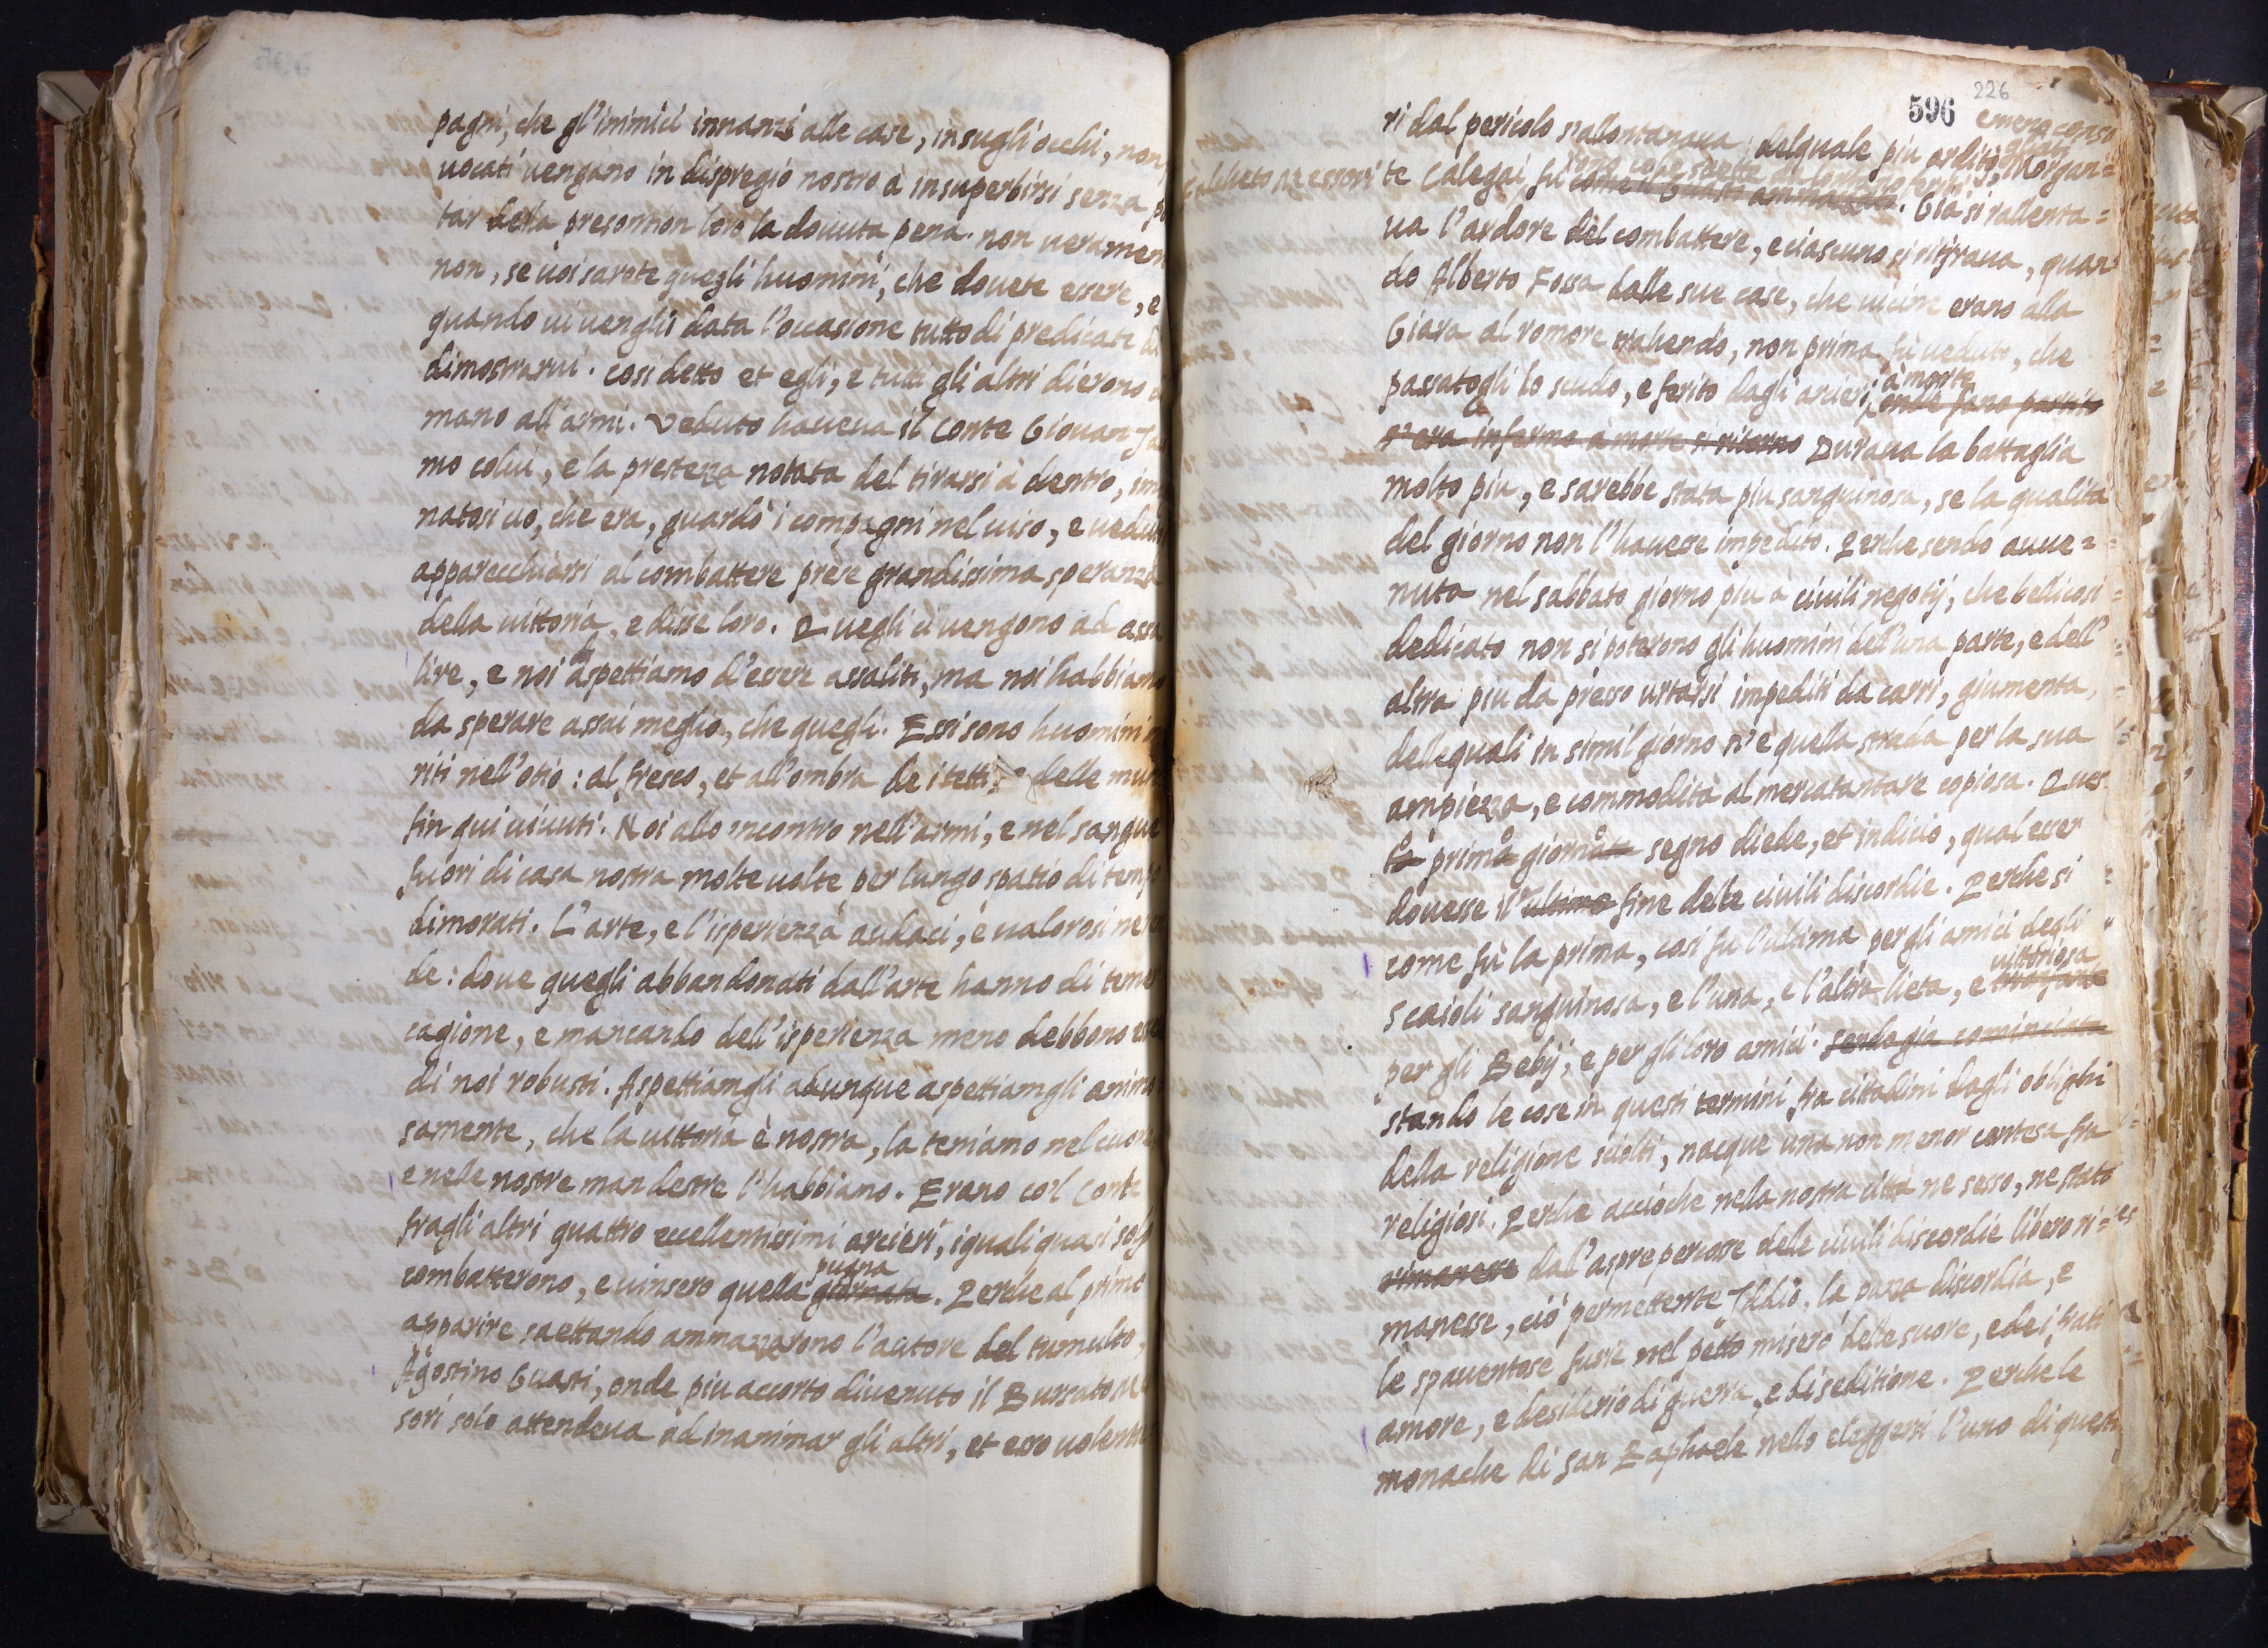 pagni, che gl'inimici innanzi alle case, insugli occhi, non
uocati uengano in dispregio nostro à insuperbirsi senza
tar della presontion loro la douuta pena. non ueramen
non, se uoi sarete quegli huomini, che douete essere, e
quando ui uenghi data l'occasione tutto dì predicate di
dimostrarui. così detto et egli, e tutti gli altri dierono di
mano all'armi. Veduto haueua il Conte Giouan
mo colui, e la prestezza notata del tirarsi à dentro, ima
natosi ciò, che era, guardò i compagni nel uiso, e ueduti
apparecchiarsi al combattere prese grandissima speranza
della uittoria, e disse loro. Quegli ci vengono ad assa
lire, e noi aspettiamo d'essere assaliti, ma noi habbiamo
da sperare assai meglio, che quegli. Essi sono huomini
riti nell'otio: al fresco, et all'ombra de i tetti, e delle mura
fin qui uiuuti. Noi allo incontro nell'armi, e nel sangue
fuori di casa nostra molte uolte per lungo spatio di tempo
dimorati. L'arte, e l'isperienza audaci, e ualorosi ne ren
de: doue quegli abbandonati dall'arte hanno di temer
cagione, e mancando dell'isperienza meno debbono esser
di noi robusti. Aspettiamgli adunque aspettiamgli animo
samente, che la uittoria è nostra, la teniamo nel cuore
e nele nostre man destre l'habbiamo. Erano co'l Conte
fragli altri quattro eccellentissimi arcieri, i quali quasi soli
pugna
combatterono, e uinsero quella giornata. Perche al primo
apparire saettando ammazzarono l'autore del tumulto,
Agostino Guasti, onde piu accorto diuenuto il Bursato
sori solo attendeua ad inanimar gli altri, et esso uolen
596
226
ri dal pericolo s'allontanaua, delquale piu ardito Morgan=
te Calegai fù come il Guasti ammazzato. Già si rallenta=
ua l'ardore del combattere, e ciascuno si ritiraua, quan
do Alberto Fossa dalle sue case, che uicine erano alla
Giara al romore trahendo, non prima fù ueduto, che
à morte
passatogli lo scudo, e ferito dagli arcieri, onde
n'era infermo a morte si ritorno Duraua la battaglia
molto piu, e sarebbe stata piu sanguinosa, se la qualità
del giorno non l'hauesse impedito. Perche sendo auue=
nuta nel sabbato giorno piu à ciuili negotij, che bellicosi
dedicato non si poterono gli huomini dell'una parte, e dell'
altra piu da presso urtarsi impediti da carri, giumenta,
dellequali in simil giorno n'è quella strada per la sua
ampiezza, e commodità al mercatantare copiosa. Ques
to primo giorno segno diede, et indicio, qual esser
douesse il ultimo fine delle ciuili discordie. Perche si
come fù la prima, così fu l'ultima per gli amici degli
uittoriosa
Scaioli sanguinosa, e l'una, e l'altra lieta, e
per gli Bebij, e per gli loro amici. sendo gia cominciata
stando le cose in questi termini fra cittadini dagli oblighi
della religione sciolti, nacque una non menor contesa fra
religiosi. Perche accioche nella nostra città ne sesso, ne stato
rimanesse dal'aspre percosse delle ciuili discordie libero ri=
manesse, ciò permettente Iddio, la pazza discordia, e
le spauentose furie nel petto misero delle suore, e de i frati
amore, e desiderio di guerra, e di seditione. Perche le
monache di San Raphaele nello eleggersi l'uno di questi